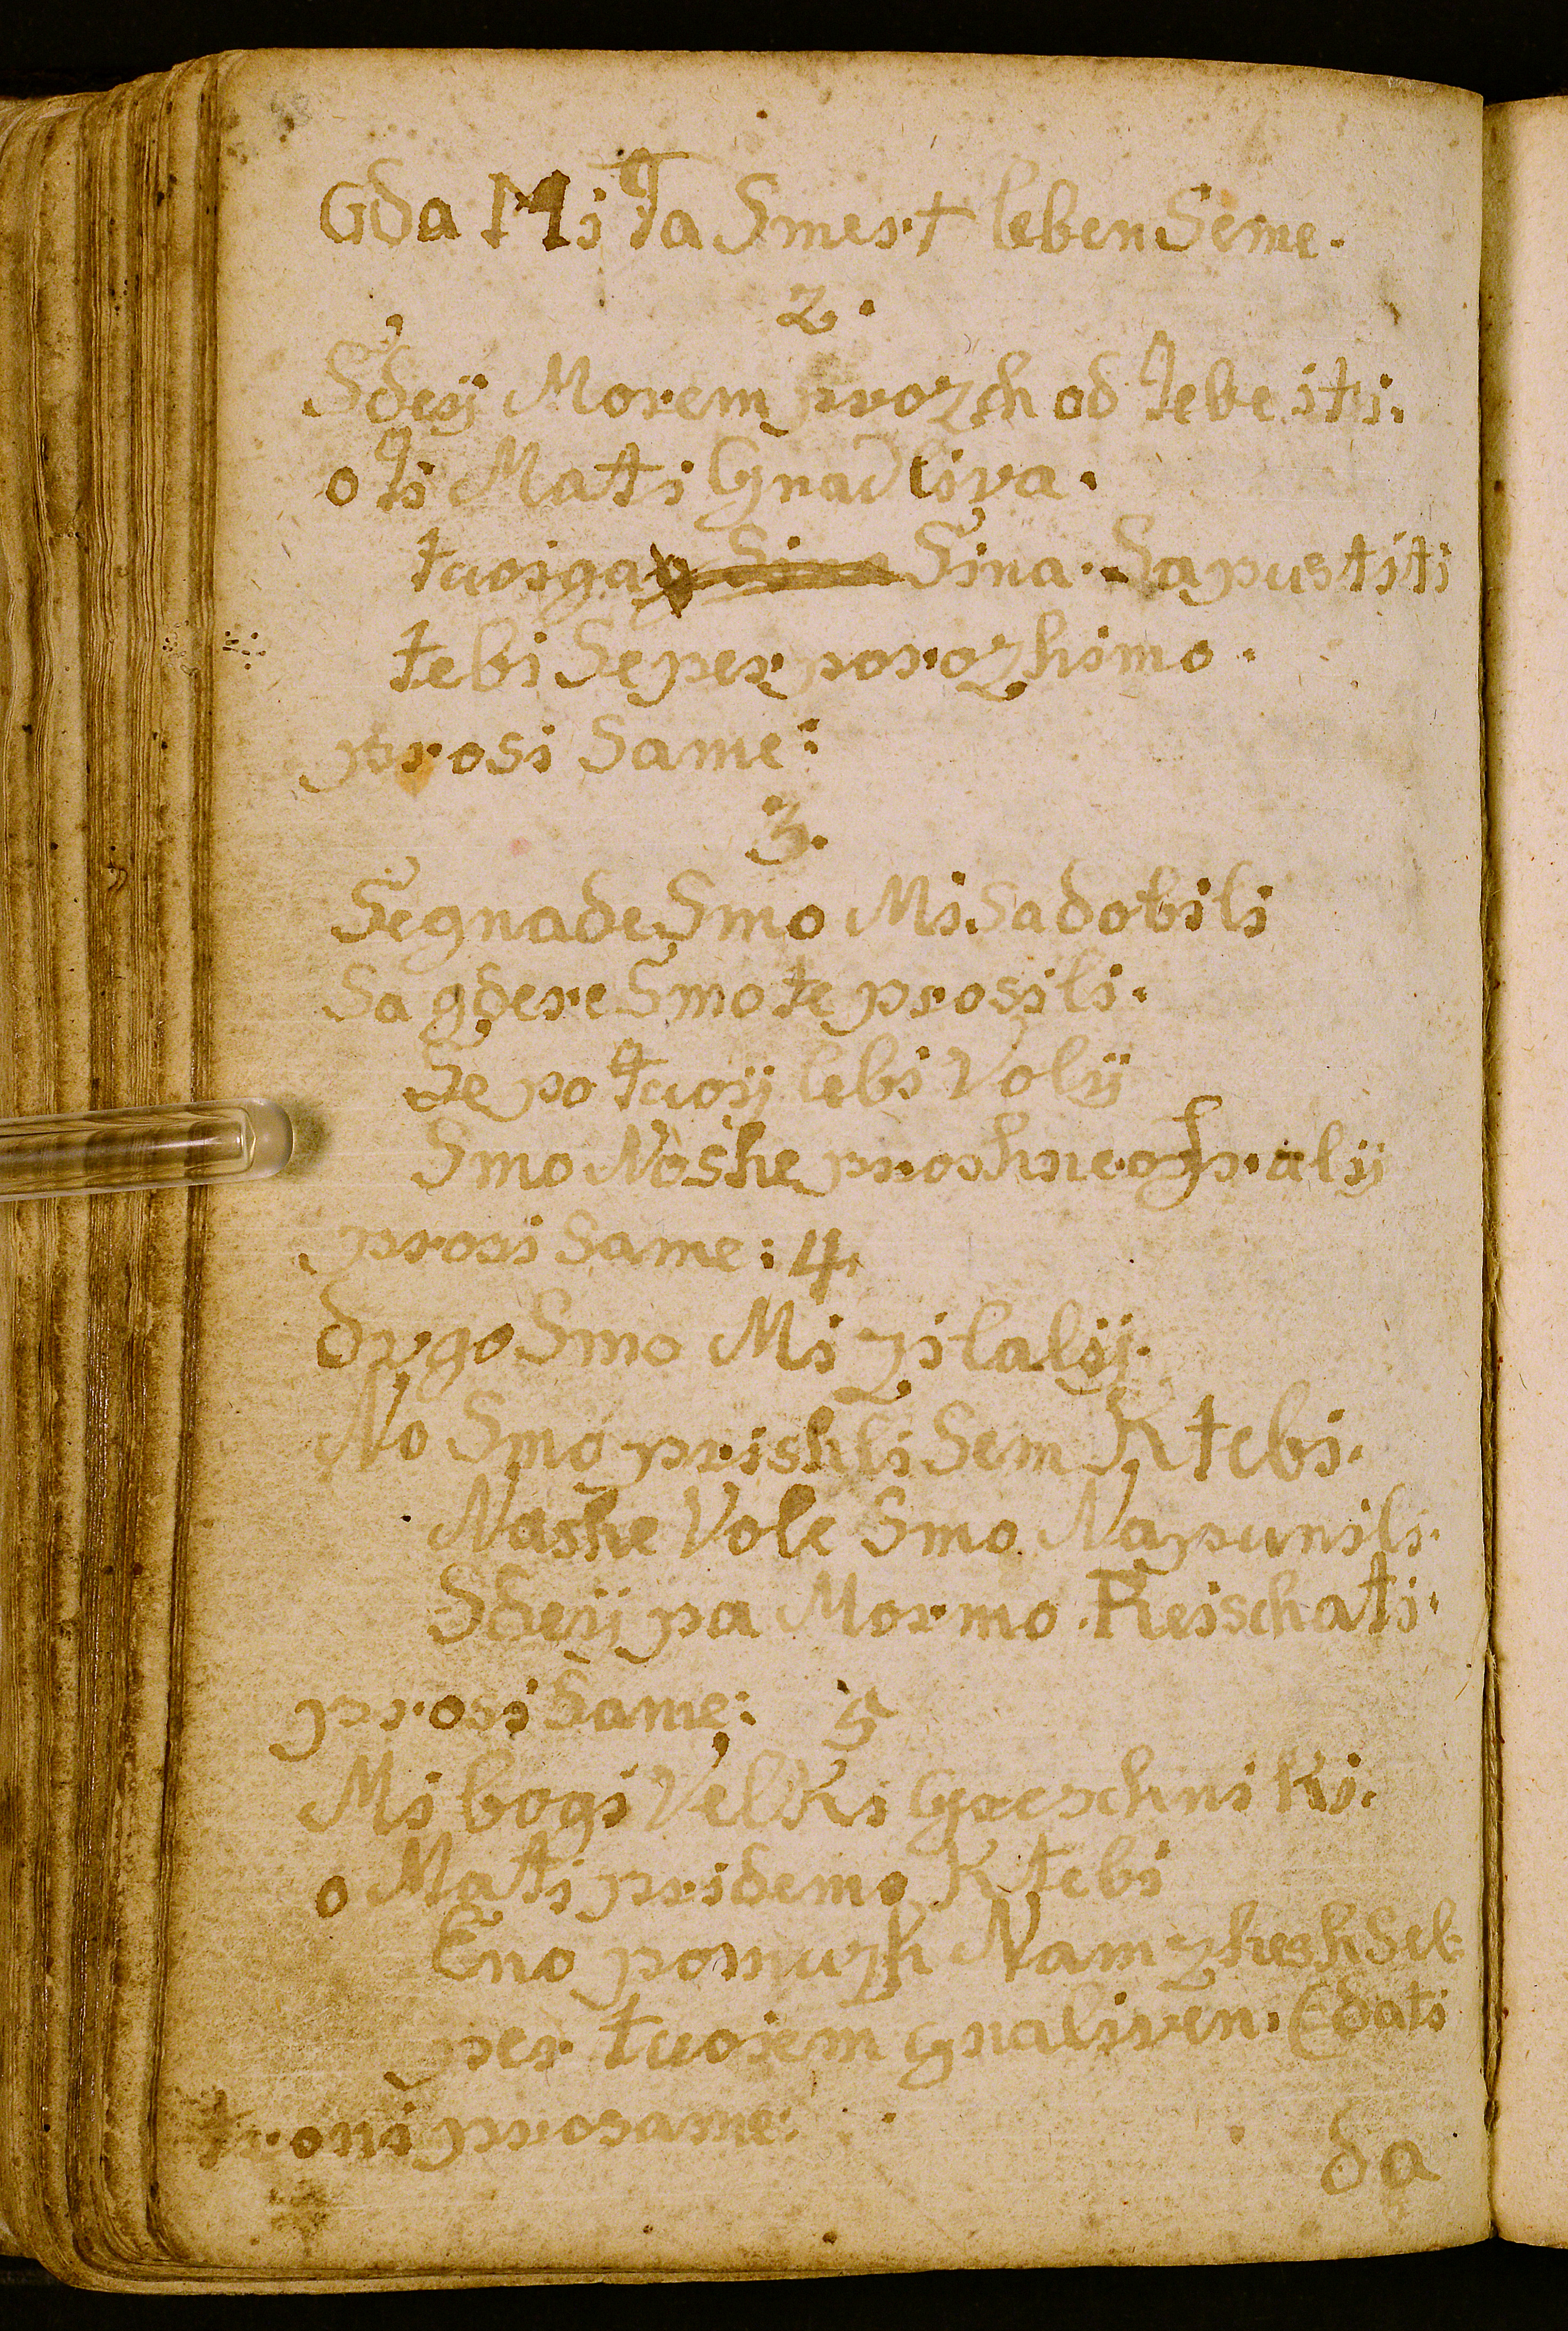 Gda Mi ta Smert leben Seme.
2.
Sdeÿ Morem prozh od tebe iti.
o ti Mati Gnadliva.
tuoiga Sina Sina. Sapustiti
tebi Se per porozhimo.
prosi Same:
3.
Se gnade Smo Mi Sadobili
Sa gdere Smo te prosili.
Se po tuoÿ lebi Volÿ
Smo Noshe proshne opralÿ
prosi Same: 4
dvgo Smo Mi zitalÿ.
No Smo prishli Sem K tebi.
Nashe Vole Smo Napunili.
Sdeÿ pa Mormo Reischati.
prosi Same: 5
Mi bogi Velki Greschniki.
o Mati pridemo K tebi
Eno pomuzh Nam zhesh Seb
per tuoiem gnaliven. (dati
troni prosame:
da